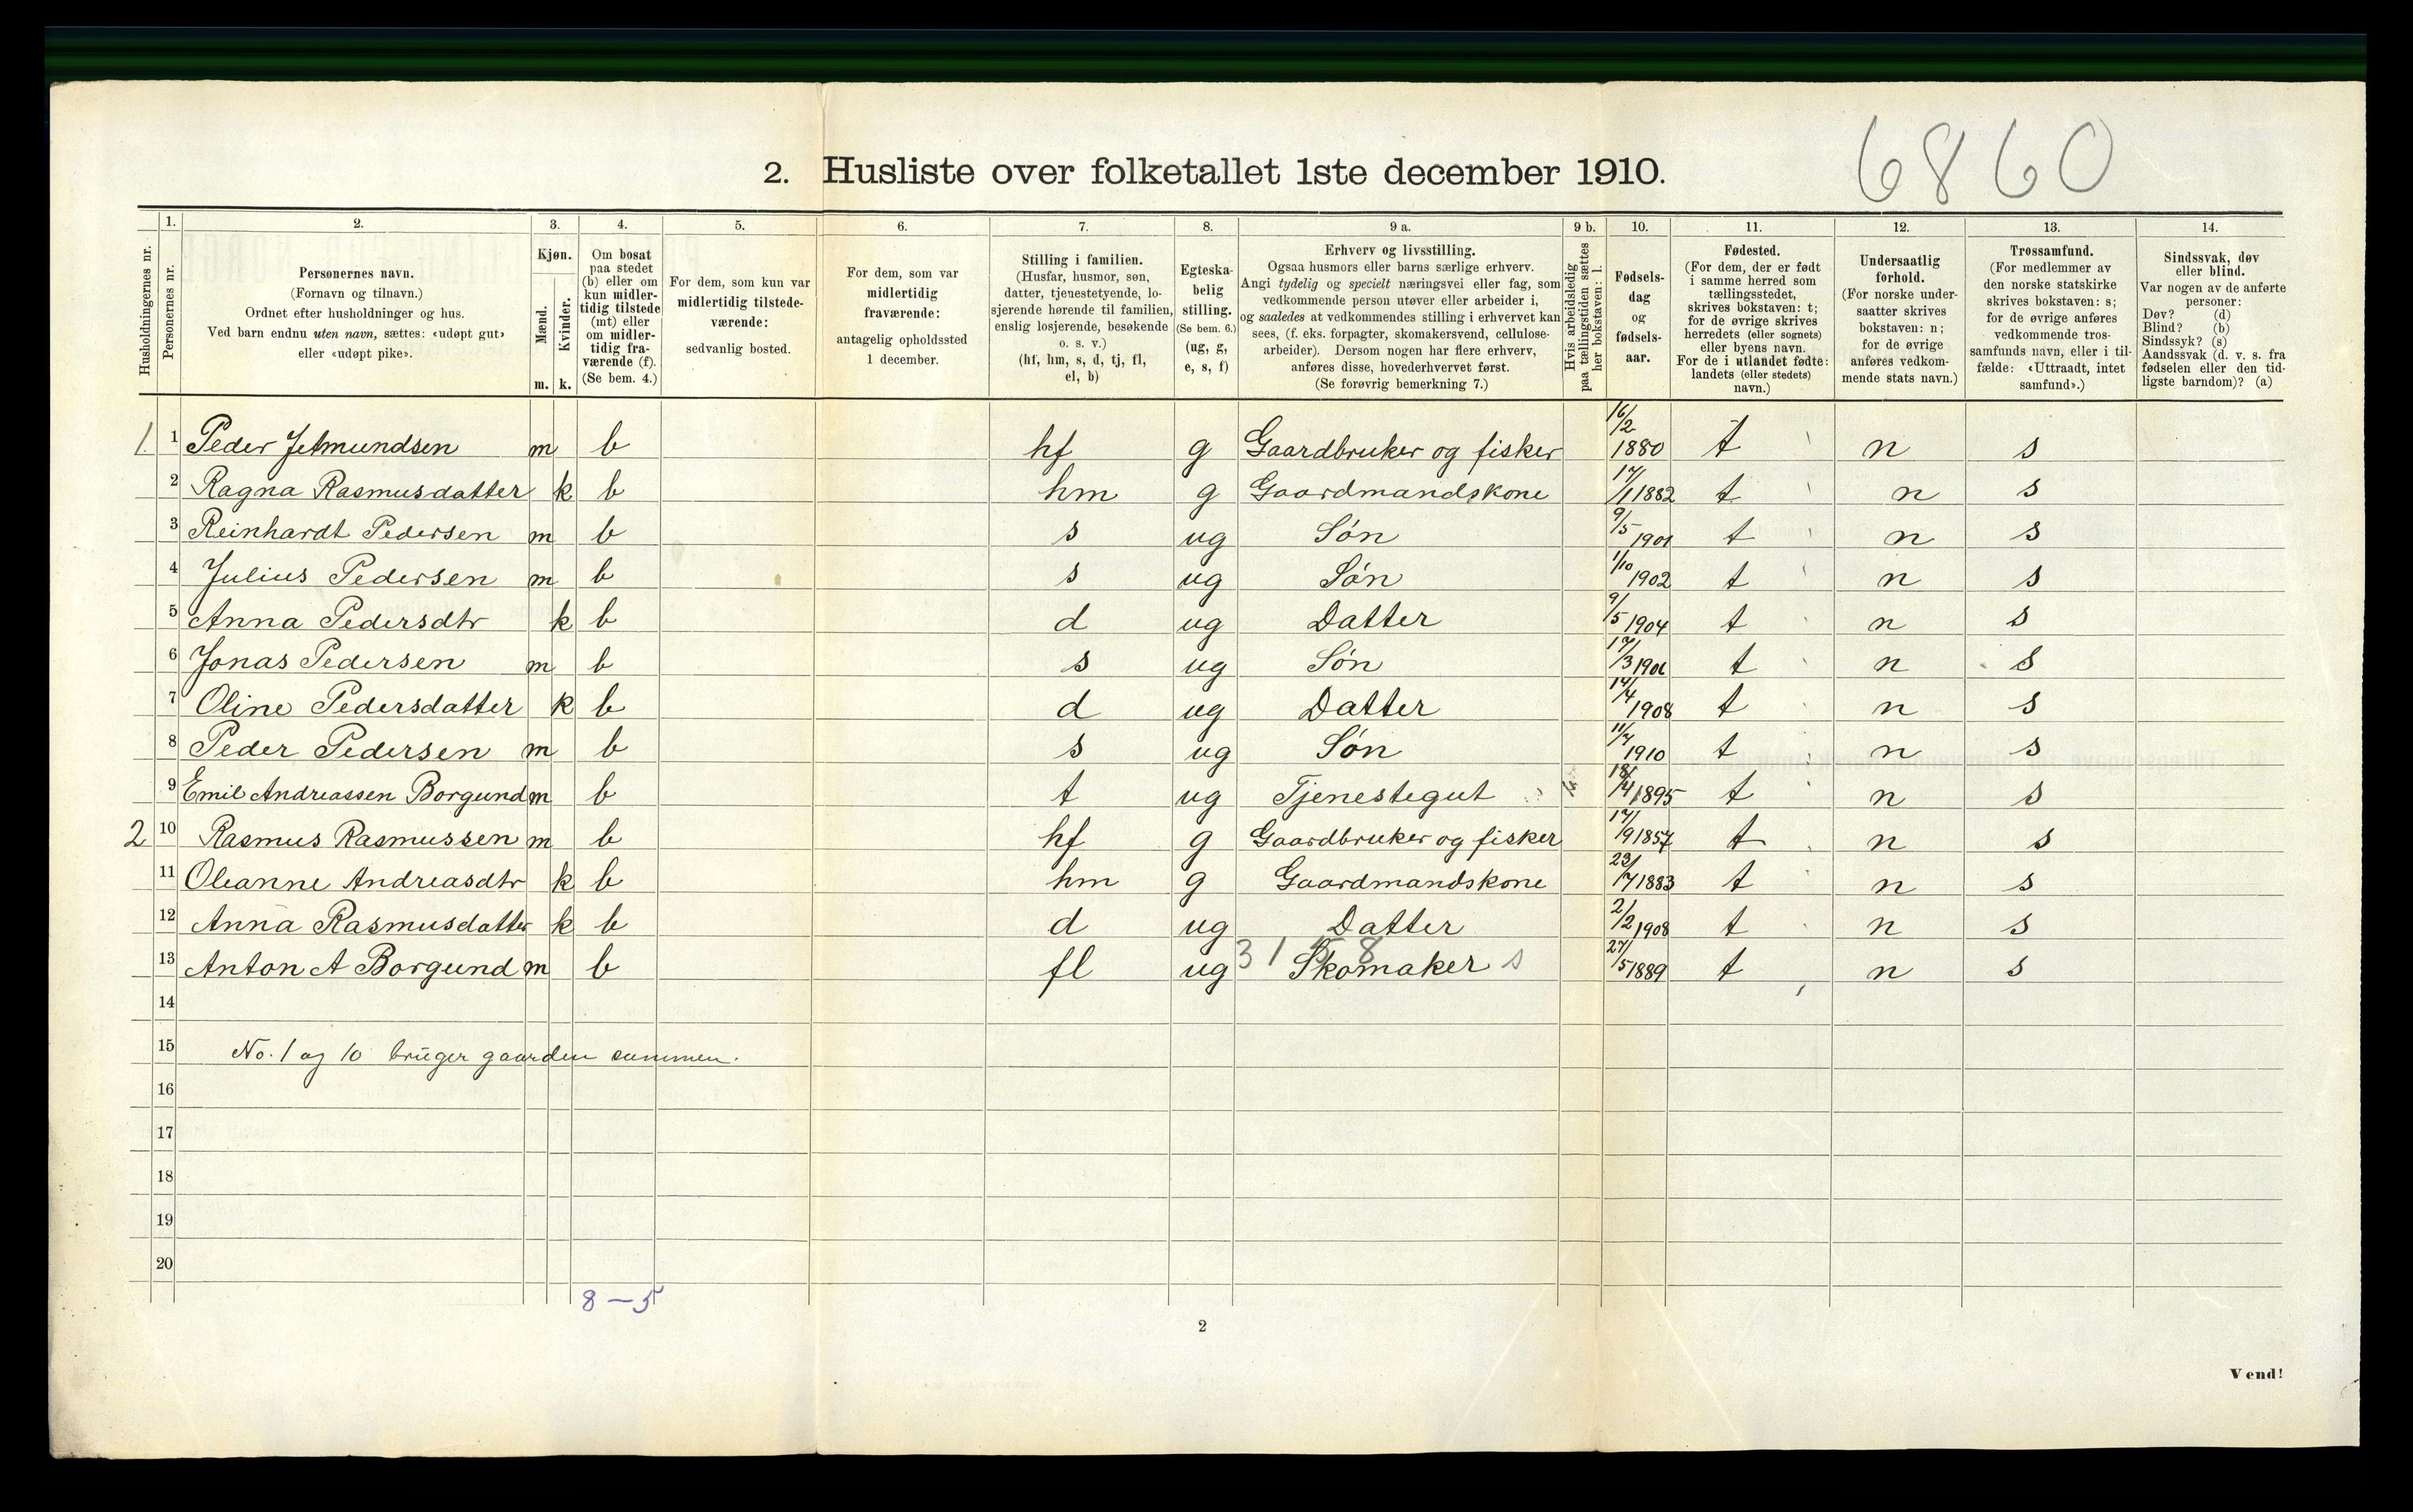 6860
2. Husliste over folketallet 1ste december 1910.
Husholdningernes nr.
1. Personernes nr.
2. Personernes navn. (Fornavn og tilnavn.) Ordnet efter husholdninger og hus. Ved barn endnu uten navn, sættes: «udøpt gut» eller «udøpt pike».
3. Kjøn. Mænd. m. Kvinder. k.
4. Om bosat paa stedet (b) eller om kun midler-tidig tilstede (mt) eller om midler-tidig fra-værende (f). (Se bem. 4.)
5. For dem, som kun var midlertidig tilstede-værende: sedvanlig bosted.
6. For dem, som var midlertidig fraværende: antagelig opholdssted 1 december.
7. Stilling i familien. (Husfar, husmor, søn, datter, tjenestetyende, lo-sjerende hørende til familien, enslig losjerende, besøkende o. s. v.) (hf, hm, s, d, tj, fl, el, b)
8. Egteska-belig stilling. (Se bem. 6.) (ug, g, e, s, f)
9 a. Erhverv og livsstilling. Ogsaa husmors eller barns særlige erhverv. Angi tydelig og specielt næringsvei eller fag, som vedkommende person utøver eller arbeider i, og saaledes at vedkommendes stilling i erhvervet kan sees, (f. eks. forpagter, skomakersvend, cellulose-arbeider). Dersom nogen har flere erhverv, anføres disse, hovederhvervet først. (Se forøvrig bemerkning 7.)
9 b. Hvis arbeidsledig paa tællingstiden sættes her bokstaven: l.
10. Fødsels-dag og fødsels-aar.
11. Fødested. (For dem, der er født i samme herred som tællingsstedet, skrives bokstaven: t; for de øvrige skrives herredets (eller sognets) eller byens navn. For de i utlandet fødte: landets (eller stedets) navn.)
12. Undersaatlig forhold. (For norske under-saatter skrives bokstaven: n; for de øvrige anføres vedkom-mende stats navn.)
13. Trossamfund. (For medlemmer av den norske statskirke skrives bokstaven: s; for de øvrige anføres vedkommende tros-samfunds navn, eller i til-fælde: «Uttraadt, intet samfund».)
14. Sindssvak, døv eller blind. Var nogen av de anførte personer: Døv? (d) Blind? (b) Sindssyk? (s) Aandssvak (d. v. s. fra fødselen eller den tid-ligste barndom)? (a)
1. 1 Peder Jetmundsen m b hf g Gaardbruker og fisker 16/2 1880 t n s
2 Ragna Rasmusdatter k b hm g Gaardmandskone 17/1 1882 t n s
3 Reinhardt Pedersen m b s ug Søn 9/5 1901 t n s
4 Julius Pedersen m b s ug Søn 1/10 1902 t n s
5 Anna Pedersdtr k b d ug Datter 9/5 1904 t n s
6 Jonas Pedersen m b s ug Søn 17/3 1906 t n s
7 Oline Pedersdatter k b d ug Datter 14/4 1908 t n s
8 Peder Pedersen m b s ug Søn 11/4 1910 t n s
9 Emil Andreassen Borgund m b t ug Tjenestegut 18/4 1895 t n s
2 10 Rasmus Rasmussen m b hf g Gaardbruker og fisker 17/9 1857 t n s
11 Oleanne Andreasdtr k b hm g Gaardmandskone 23/7 1883 t n s
12 Anna Rasmusdatter k b d ug Datter 2/2 1908 t n s
13 Anton A Borgund m b fl ug Skomaker s 27/5 1889 t n s
14
15 No. 1 og 10 bruger gaarden sammen.
16
17
18
19
20
8 – 5
2
Vend!